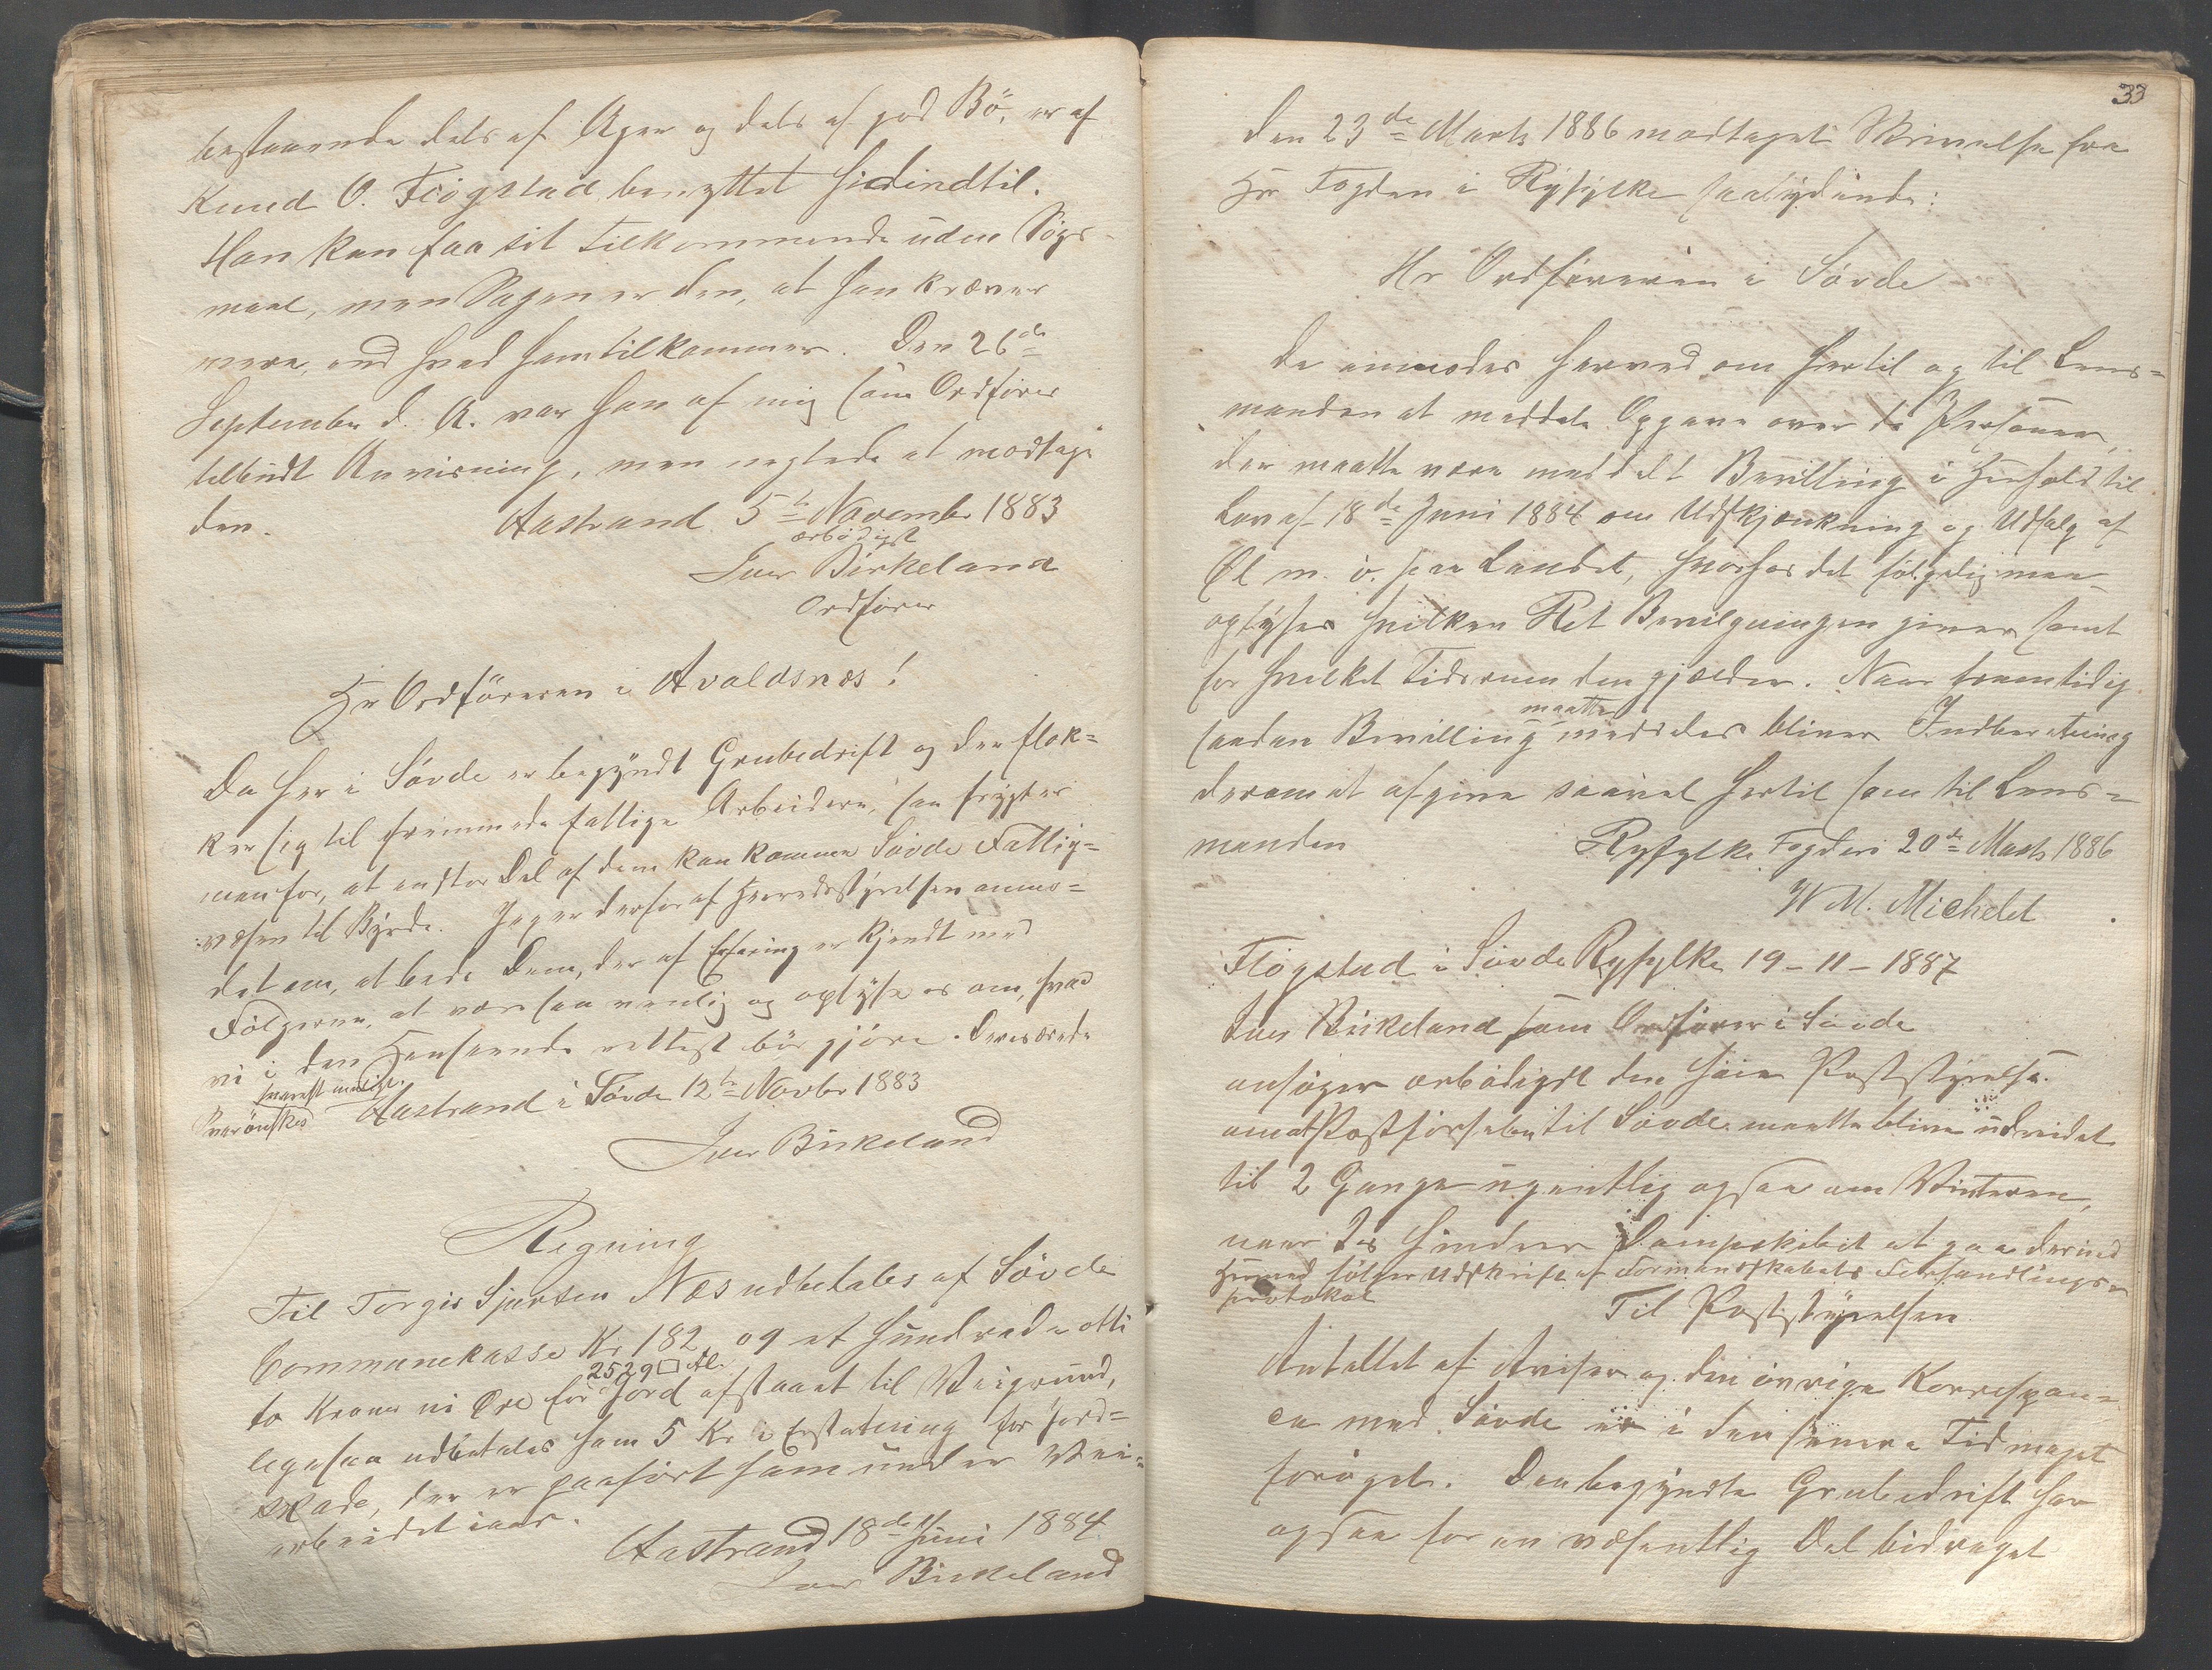 bestaaende dels af Ager og dels af god Bö, er af
Knud O. Fiögstad benyttet hidindtil.
Han kan faa sit Tilkommende uden Søgs-
maal, men Sagen er den, at han kræver
mere, end hvad ham tilkommer. Den 26de
September d. A. var han af mig som Ordfører
tilbudt Anvisning, men negtede at modtage
den.
Aastrand 5te November 1883
ærbødigst
Iver Birkeland
Ordfører
Hr Ordføreren i Avaldsnæs!
Da her i Søvde er begyndt Grubedrift og der flok=
ker sig til fremmede fattige Arbeidere, saa frygter
man for, at en stor Del af dem kan komme Søvde Fattig=
væsen til Byrde. Jeg er derfor af Herredsstyrelsen anmo=
det om, at bede Dem, der af Erfaring er kjendt med
Følgerne, at være saa venlig og oplyse os om, hvad
vi i den Henseende rettest bör gjöre. Deres ærede
snarest muligt.
Svar ønskes
Aastrand i Søvde 12te Novbr 1883
Iver Birkeland
Regning
Til Torgis Sjursen Næs udbetales af Søvde
Communekasse Kr. 182,09 et hundrede otti
2529 □ Al.
to Kroner ni Øre for Jord afstaaet til Veigrund,
ligesaa udbetales ham 5 Kr. i Erstatning for Jord=
skade, der er paaført ham under Vei=
arbeidet iaar.
Aastrand 18de Juni 1884
Iver Birkeland
33
Den 23de Marts 1886 modtaget Skrivelse fra
Hr Fogden i Ryfylke saalydende:
Hr Ordføreren i Søvde
De anmodes herved om hertil og til Lens=
manden at meddele Opgave over de Personer,
der maatte være meddelt Bevilling i Henhold til
Lov af 18de Juni 1884 om Udskjænkning og Udsalg af
Øl m. v. paa Landet, hvorhos det følgelig maa
oplyses hvilken Ret Bevilgningen giver samt
for hvilket Tidsrum den gjælder. Naar fremtidig
maatte
saadan Bevilling meddeles bliver Indberetning
derom at afgive saavel hertil som til Lens=
manden
Ryfylke Fogderi 20de Marts 1886
W M. Michelet
Fløgstad i Søvde Ryfylke 19-11-1887
Iver Birkeland som Ordfører i Søvde
ansøger ærbødigst den høie Poststyrelse
om at Postførselen til Søvde maatte blive udvidet
til 2 Gange ugentlig ogsaa om Vinteren,
naar Is hindrer Dampskibet at gaa derind
Herved følger Udskrift af Formandskabets Forhandlings=
protokol
Til Poststyrelsen
Antallet af Aviser og den øvrige Korrespon=
ce med Søvde er i den senere Tid meget
forøget. Den begyndte Grubedrift har
ogsaa for en væsentlig Del bidraget